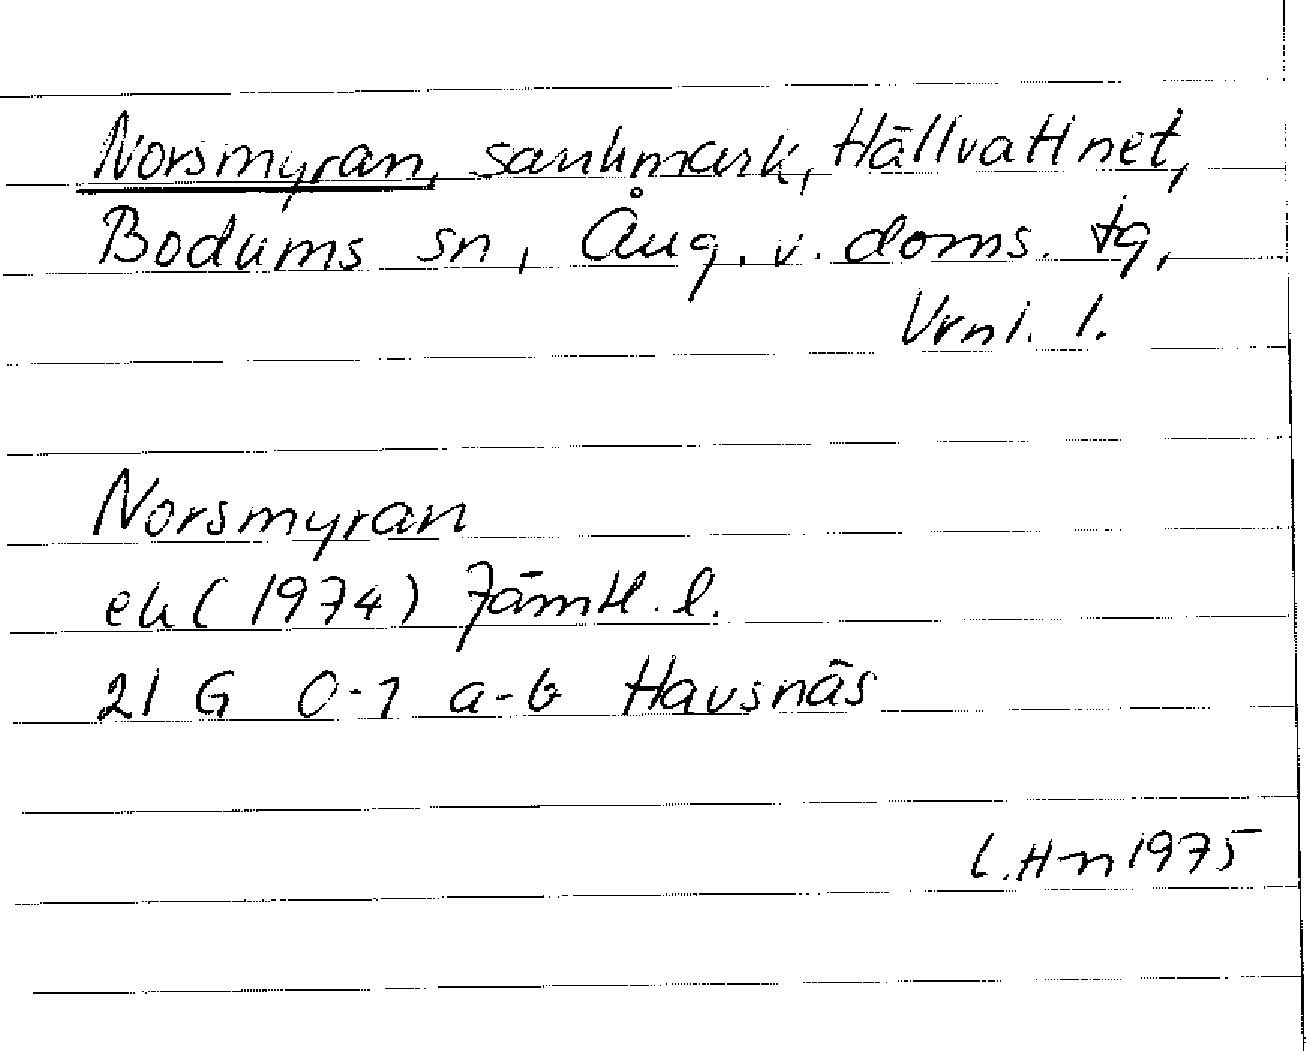 Norsmyran, sankmark, Hällvattnet,
Bodums sn, Ång. v. doms. tg,
Vrnl. l.
Norsmyran
ek (1974) Jämtl. l.
21 G 0-1 a-b Havsnäs
L.H-n 1975